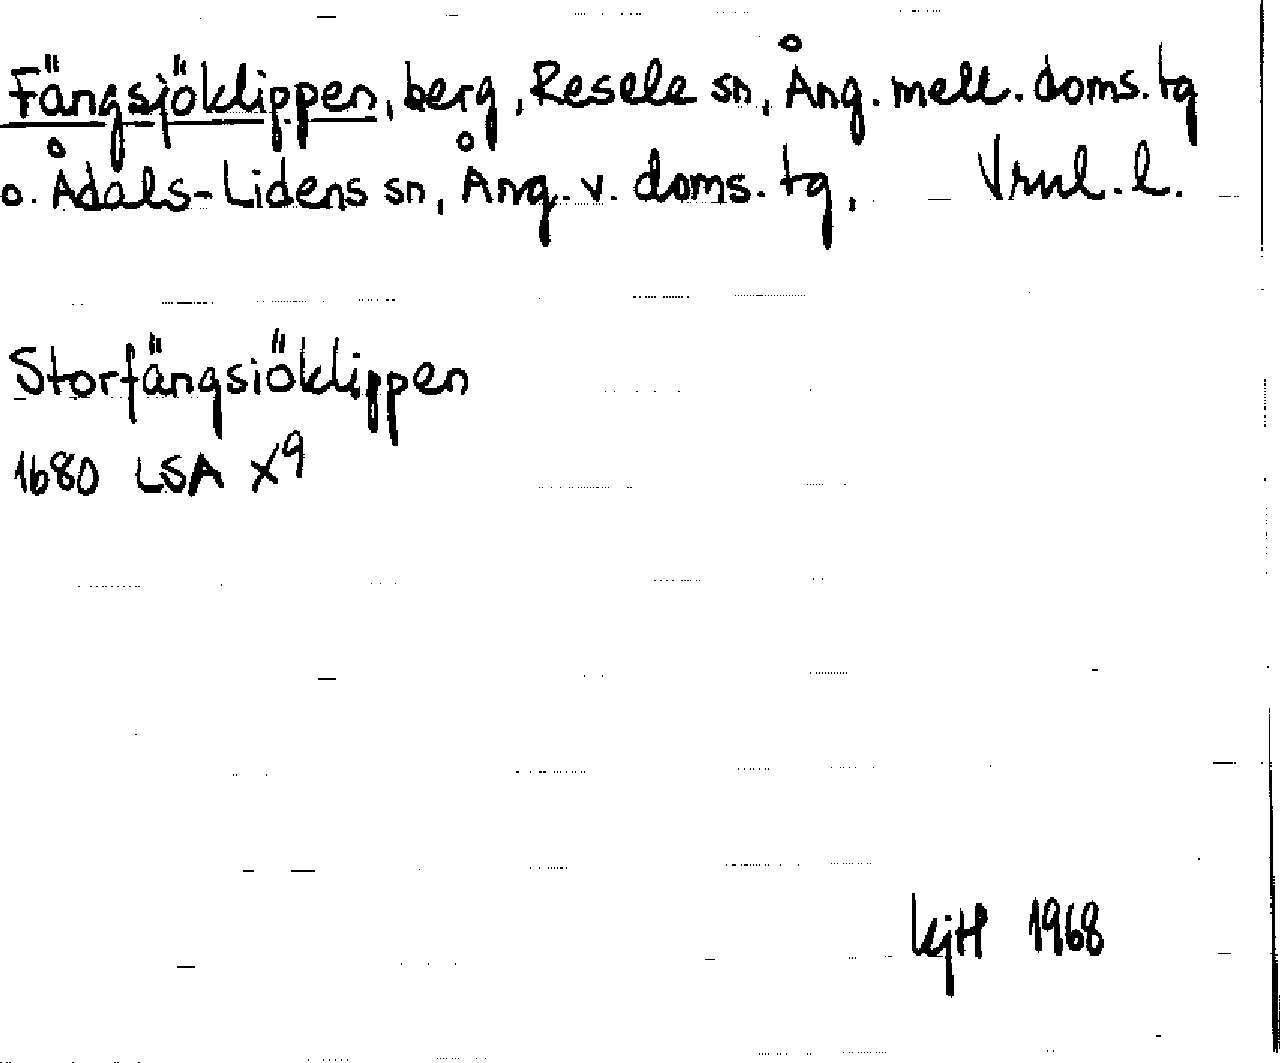 Fängsjöklippen, berg, Resele sn, Ång. mell. doms. tg
o. Ådals-Lidens sn, Ång. v. doms. tg, Vrnl. l.
Storfängsiöklippen
1680 LSA X9
KjtH 1968